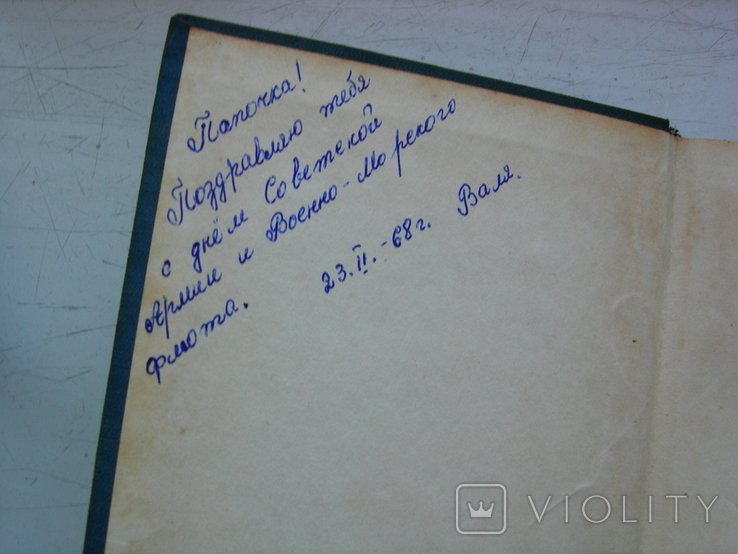 Папочка!
Поздравляю тебя
с днём Советской
Армии и Военно-Морского
флота.
23.II.-68г. Валя.
VIOLITY